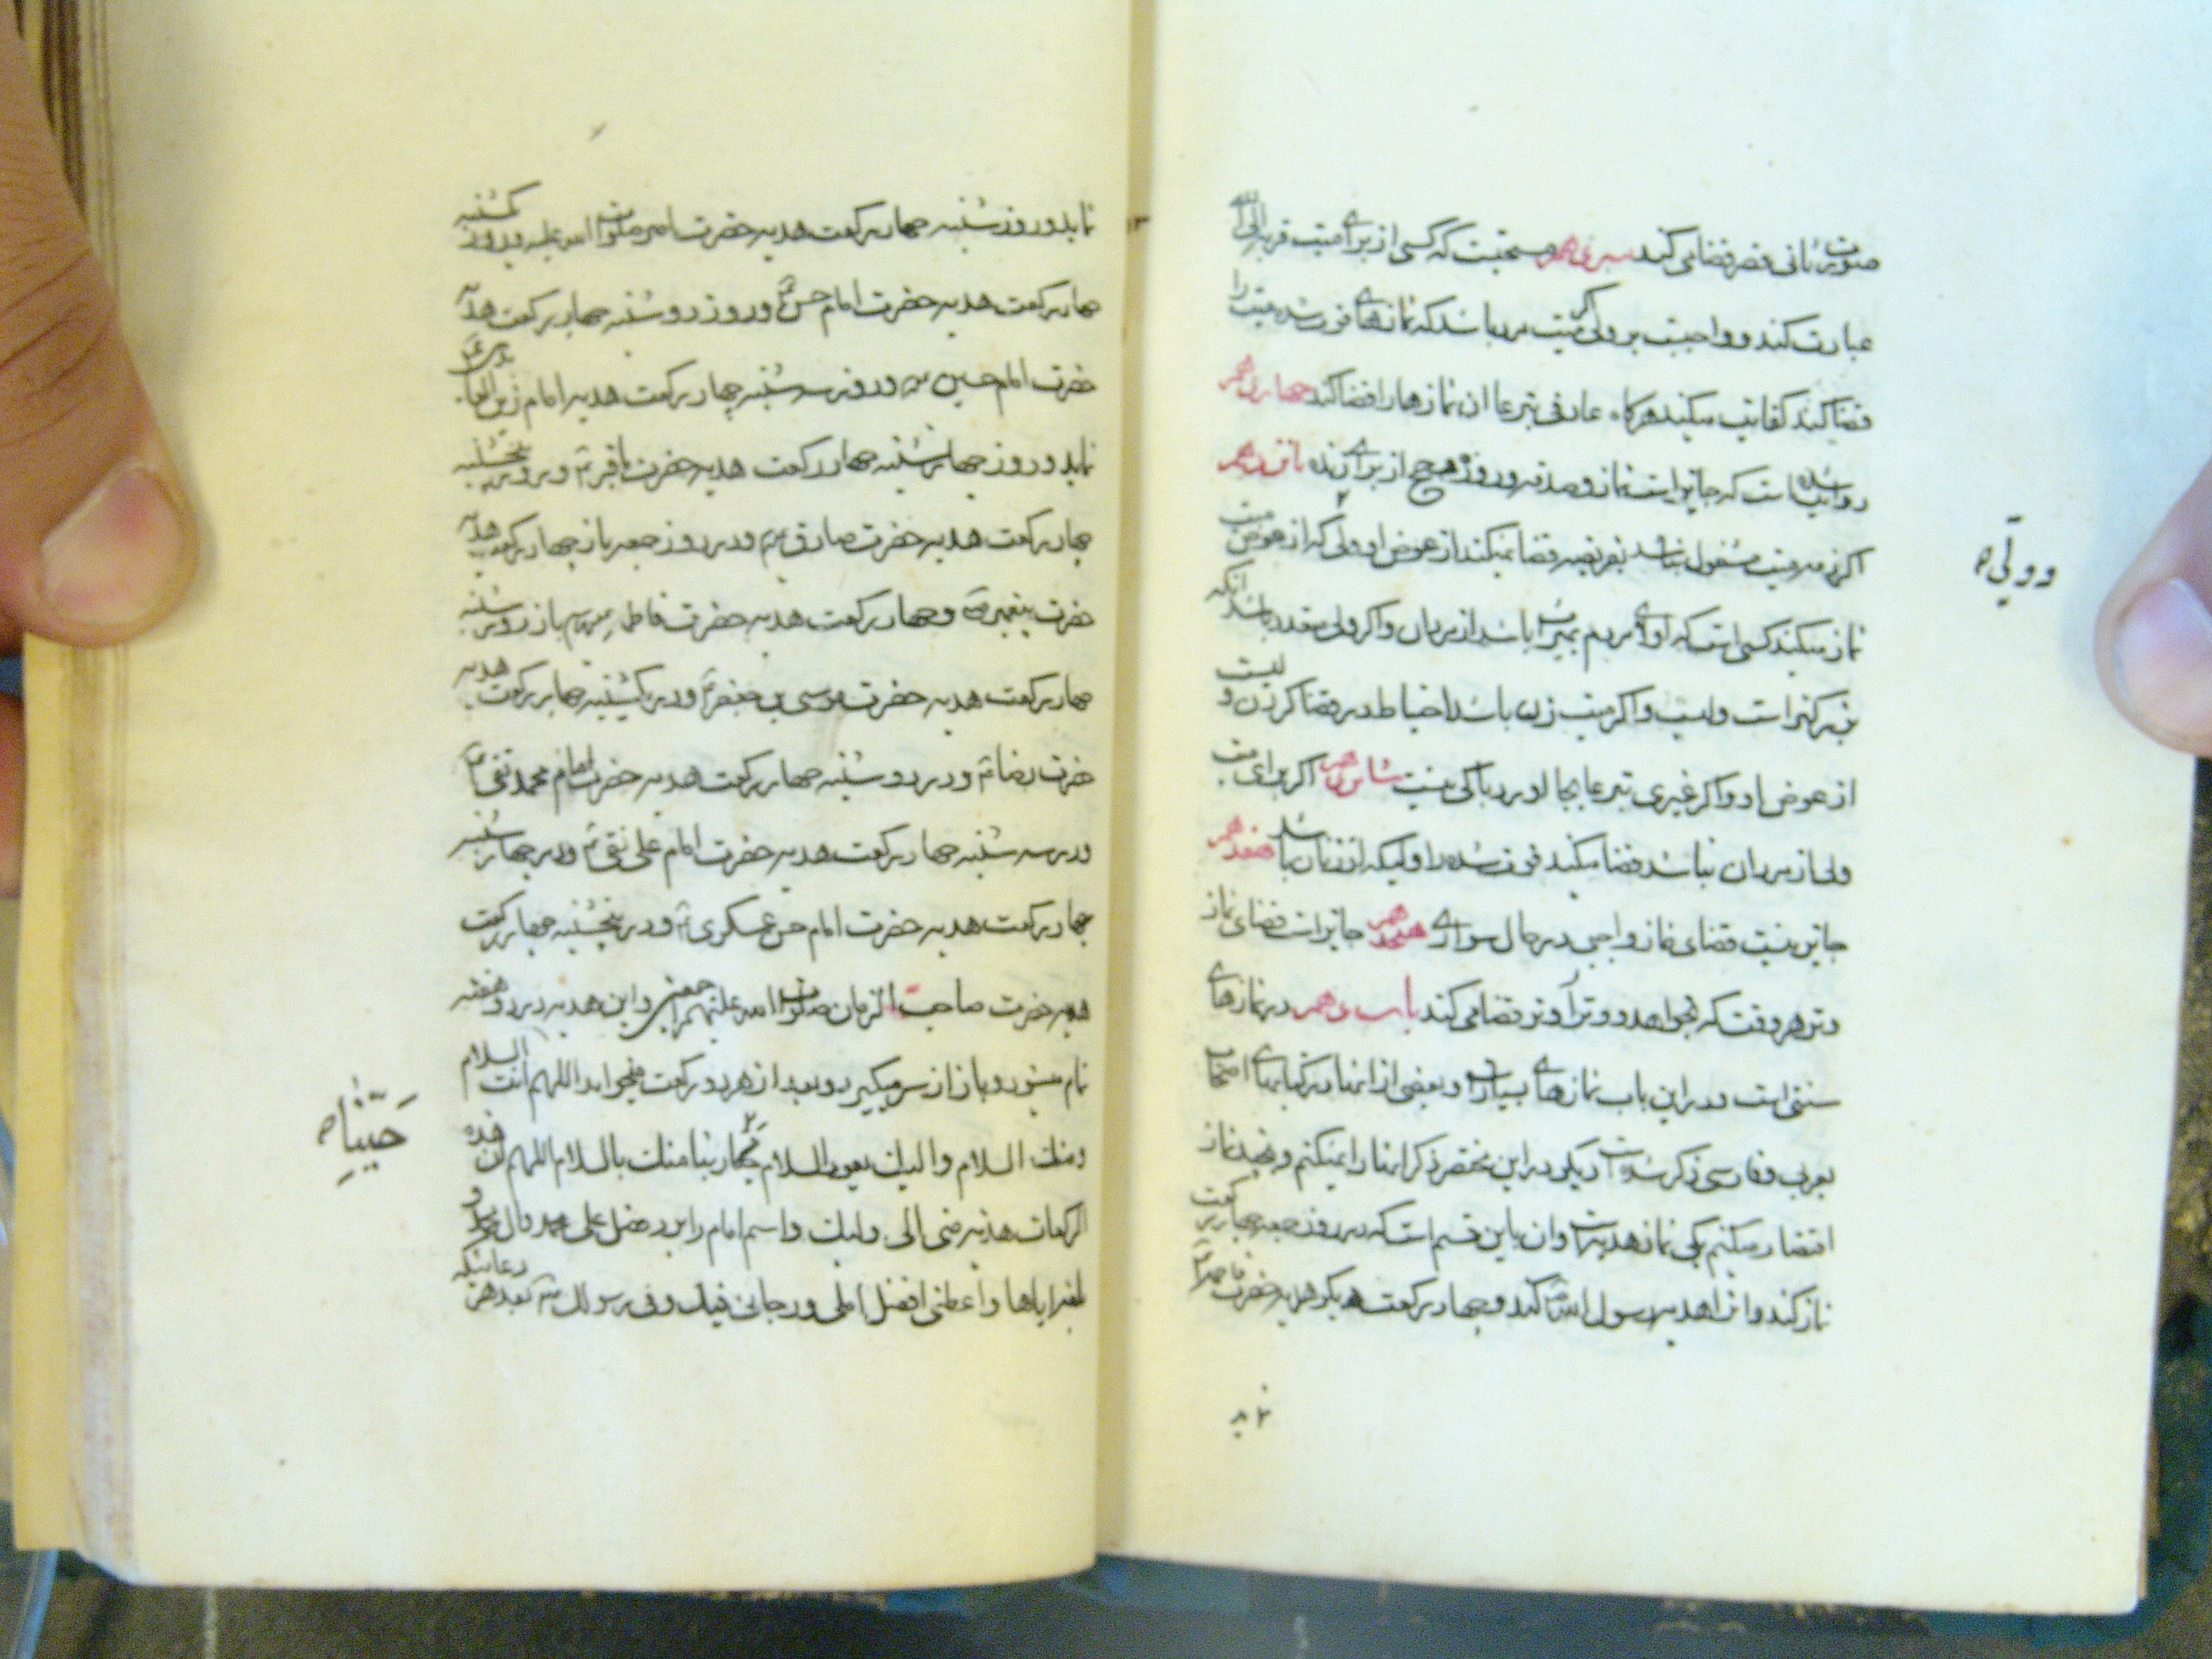 ثانی قصر قضا می کند سیزدهم مستحبست که کسی از برای میت قربة الی الله
عبادت کند و واجبست بر ولی میت مرد باشد که نمازهای فوت شده میت را
قضا کند کفایت میکند هرکاه عارفی تبرعا ان نمازها را قضا کند چهاردهم
روایت شده است که جایز است نماز و صدقه و روزه و حج از برای زنده پانزدهم
اکر ذمه میت مشغول باشد بفریضه قضا میکند از عوض او ولی که از عوض میت
نماز میکند کسی است که اولای مردم بمیراث باشد از مردان و اکر ولی متعدد باشد انکه
بزرکتر است ولیست و اکر میت زن باشد احتیاط در قضا کردن ولیست
از عوض او و اکر غیری تبرعا بجا اورد باکی نیست شانزدهم اکر برای میت
ولی از مردان نباشد قضا میکند فوت شده را ولیکه از زنان باشد هفدهم
جایز نیست قضای نماز واجبی در حال سواری هیجدهم جایز است قضای نماز
وتر هر وقت که بخواهد و وتر را وتر قضا می کند باب دهم در نمازهای
سنتی است و در این باب نمازهای بسیار است و بعضی از اینها در کتابهای اصحاب
بعربی و فارسی ذکر شده است دیکر در این مختصر ذکر اینها را نمیکنم و بچند نماز
اقتصار میکنم یکی نماز هدیه است وان باین قسم است که در روز جمعه چهار رکعت
نماز کند وانرا هدیه رسول الله ص کند و چهار رکعت دیکر هدیه حضرت فاطمه
نماید
وولی ه
نماید و روز شنبه چهار رکعت هدیه حضرت امیر صلوات الله علیه و روز یکشنبه
چهار رکعت هدیه حضرت امام حسن ع و روز دوشنبه چهار رکعت هدیه
حضرت امام حسین ع و روز سه شنبه چهار رکعت هدیه امام زین العابدین ع
نماید و روز چهارشنبه چهار رکعت هدیه حضرت باقر ع و روز پنجشنبه
چهار رکعت هدیه حضرت صادق ع و در روز جمعه باز چهار رکعت هدیه
حضرت پیغمبر ص و چهار رکعت هدیه حضرت فاطمه ع باز روز شنبه
چهار رکعت هدیه حضرت موسی بن جعفر ع و در یکشنبه چهار رکعت هدیه
حضرت رضا ع و در دوشنبه چهار رکعت هدیه حضرت امام محمد تقی ع
و در سه شنبه چهار رکعت هدیه حضرت امام علی نقی ع و در چهارشنبه
چهار رکعت هدیه حضرت امام حسن عسکری ع و در پنجشنبه چهار رکعت
هدیه حضرت صاحب الزمان صلوات الله علیهم اجمعین و این هدیه در دو هفته
تمام میشود و باز از سر میکیرد و بعد از هر دو رکعت میخواند اللهم انت السلام
ومنک السلام و الیک یعود السلام حینا ربنا منک بالسلام اللهم ان هذه
الرکعات هدیة منی الی ولیک و اسم امام را ببرد فصل علی محمد و ال محمد و
بلغه ایاها و اعطنی افضل املی ورجائی فیک وفی رسولک ص بعد هر دعائیکه
حَیّنا ه